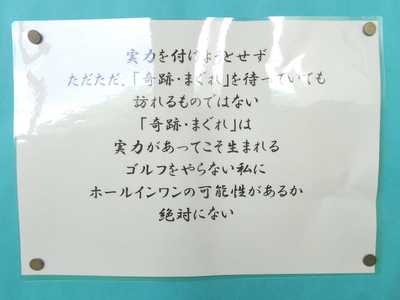 実力を付けようとせず
ただただ、「奇跡・まぐれ」を待っていても
訪れるものではない
「奇跡・まぐれ」は
実力があってこそ生まれる
ゴルフをやらない私に
ホールインワンの可能性があるか
絶対にない